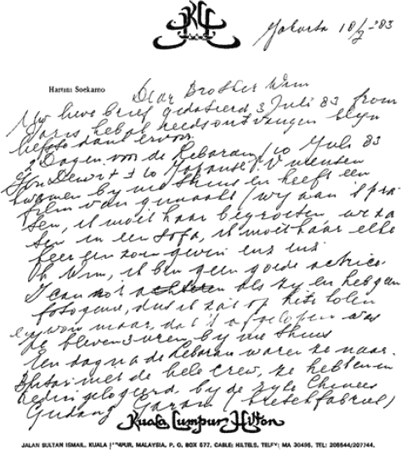 KLH
Jakarta 18/7-'83
Hartini Soekarno
Dear Brother Wim
Uw lieve brief gedateerd 3 Juli 83 from
Paris heb ik reeds ontvangen
liefste dank ervoor
2 Dagen voor de Lebaran, 10 Juli 83
Ibu Dewi + 10 Japanse
kwamen by me thuis en heeft een
film van gemaakt wy aan 't
sen, ik moet haar begroeten, we za
ten in een sofa, ik moet haar elke
keer een zoen geven enz enz
Oh Wim, ik ben geen goede actrice
I can not als zy en heb geen
fotogenie, dus ik zat op hete kolen
maar, dat 't afgelopen was
Ze bleven 3 uren by me thuis
Een dag na de Lebaran waren ze naar
met de hele crew, ze hebben en
Kediri gelogeerd, by de ryke Chinees
Gudang Garam (kretekfabriek)
Kuala Lumpur Hilton
JALAN SULTAN ISMAIL, KUALA LUMPUR, MALAYSIA, P. O. BOX 577, CABLE: HILTELS, TELEX: MA 30495, TEL: 206544/207744,